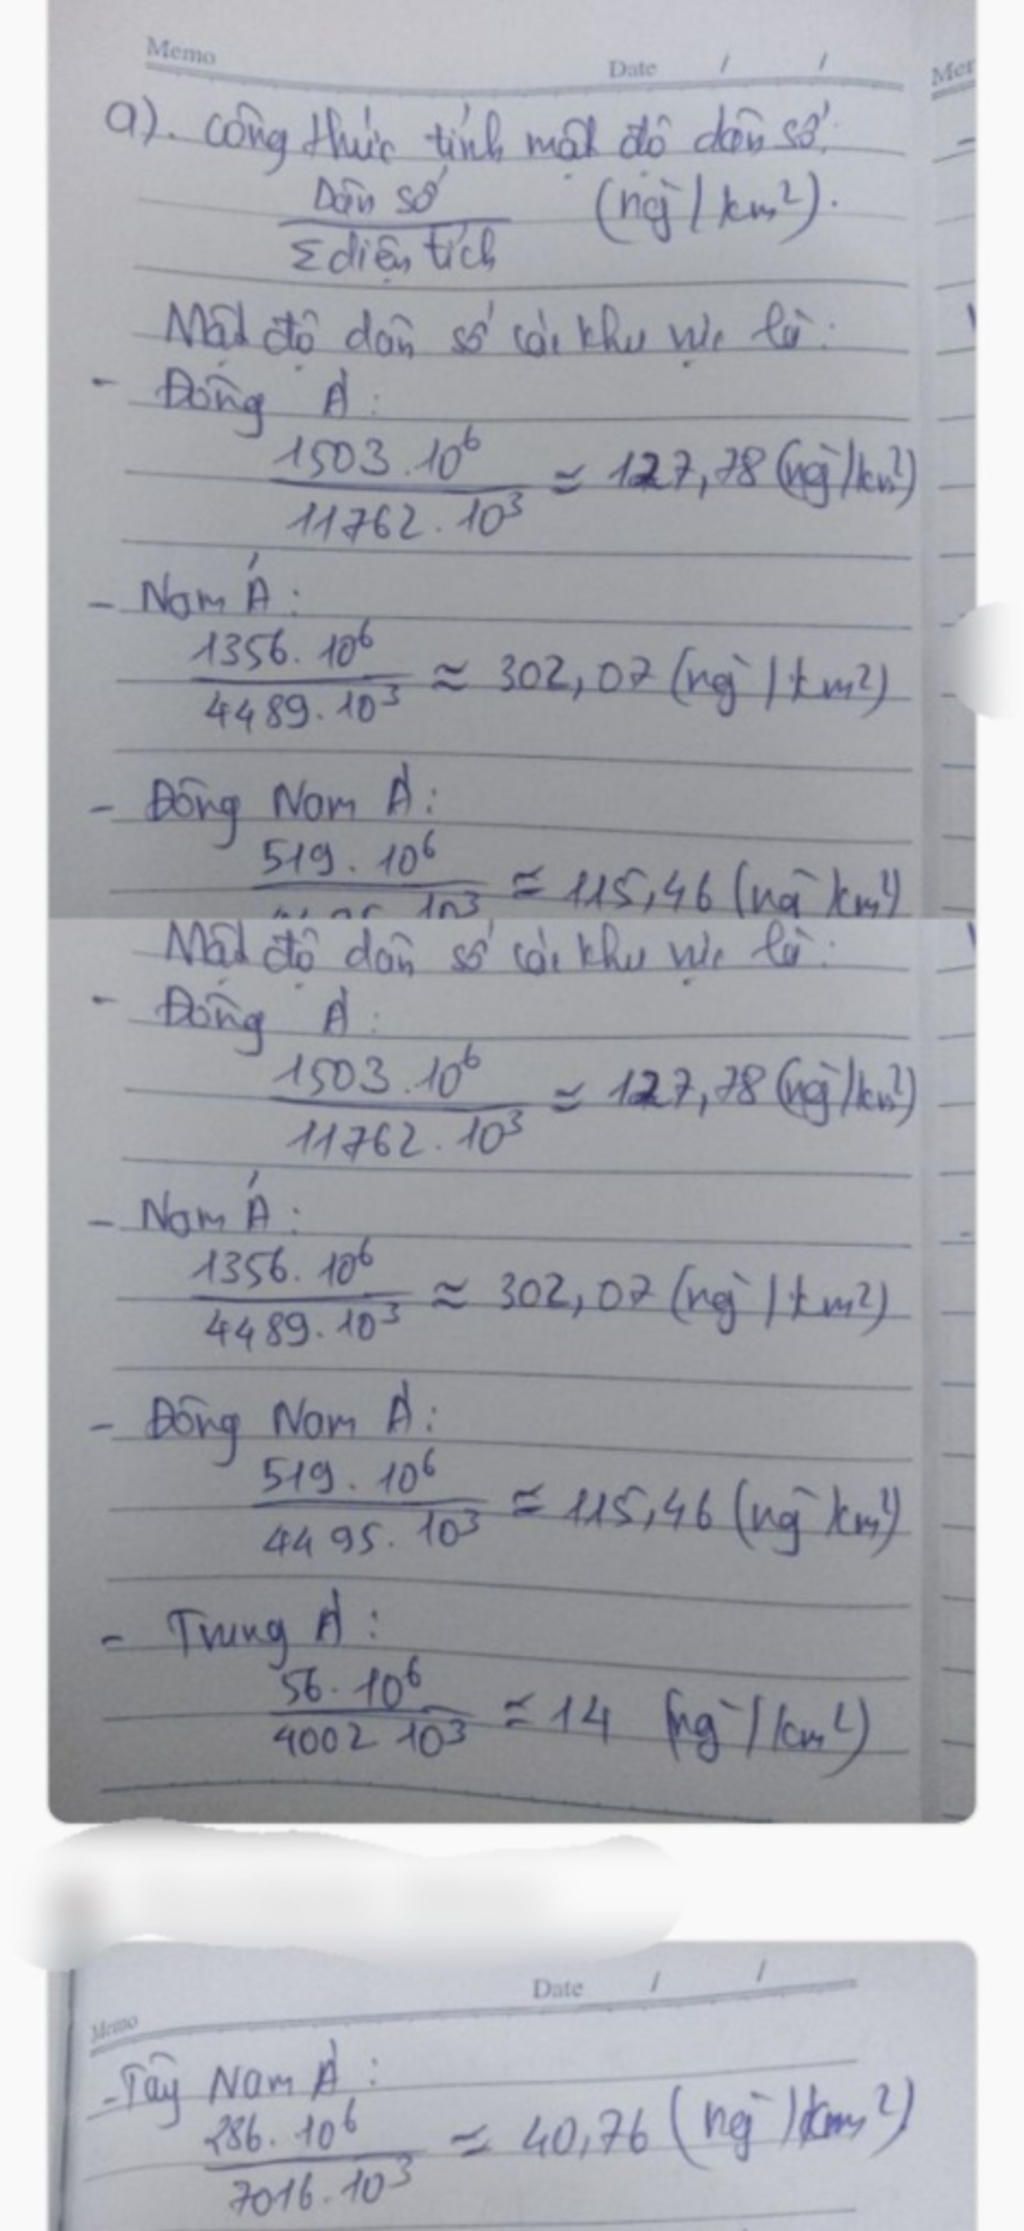 Memo
Date / /
Mem
a). Công thức tính mật độ dân số:
Dân số
Σ diện tích
(ng`/km²).
Mật độ dân số các khu vực là:
- Đông Á:
1503.10⁶
11762.10³
≈ 127,78 (ng`/km²)
- Nam Á:
1356.10⁶
4489.10³
≈ 302,07 (ng`/km²)
- Đông Nam Á:
519.10⁶
4495.10³
≈ 115,46 (ng`/km²)
Mật độ dân số các khu vực là:
- Đông Á:
1503.10⁶
11762.10³
≈ 127,78 (ng`/km²)
- Nam Á:
1356.10⁶
4489.10³
≈ 302,07 (ng`/km²)
- Đông Nam Á:
519.10⁶
4495.10³
≈ 115,46 (ng`/km²)
- Trung Á:
56.10⁶
4002 10³
≈ 14 (ng`/km²)
Date / /
Memo
- Tây Nam Á:
286.10⁶
7016.10³
≈ 40,76 (ng`/km²)